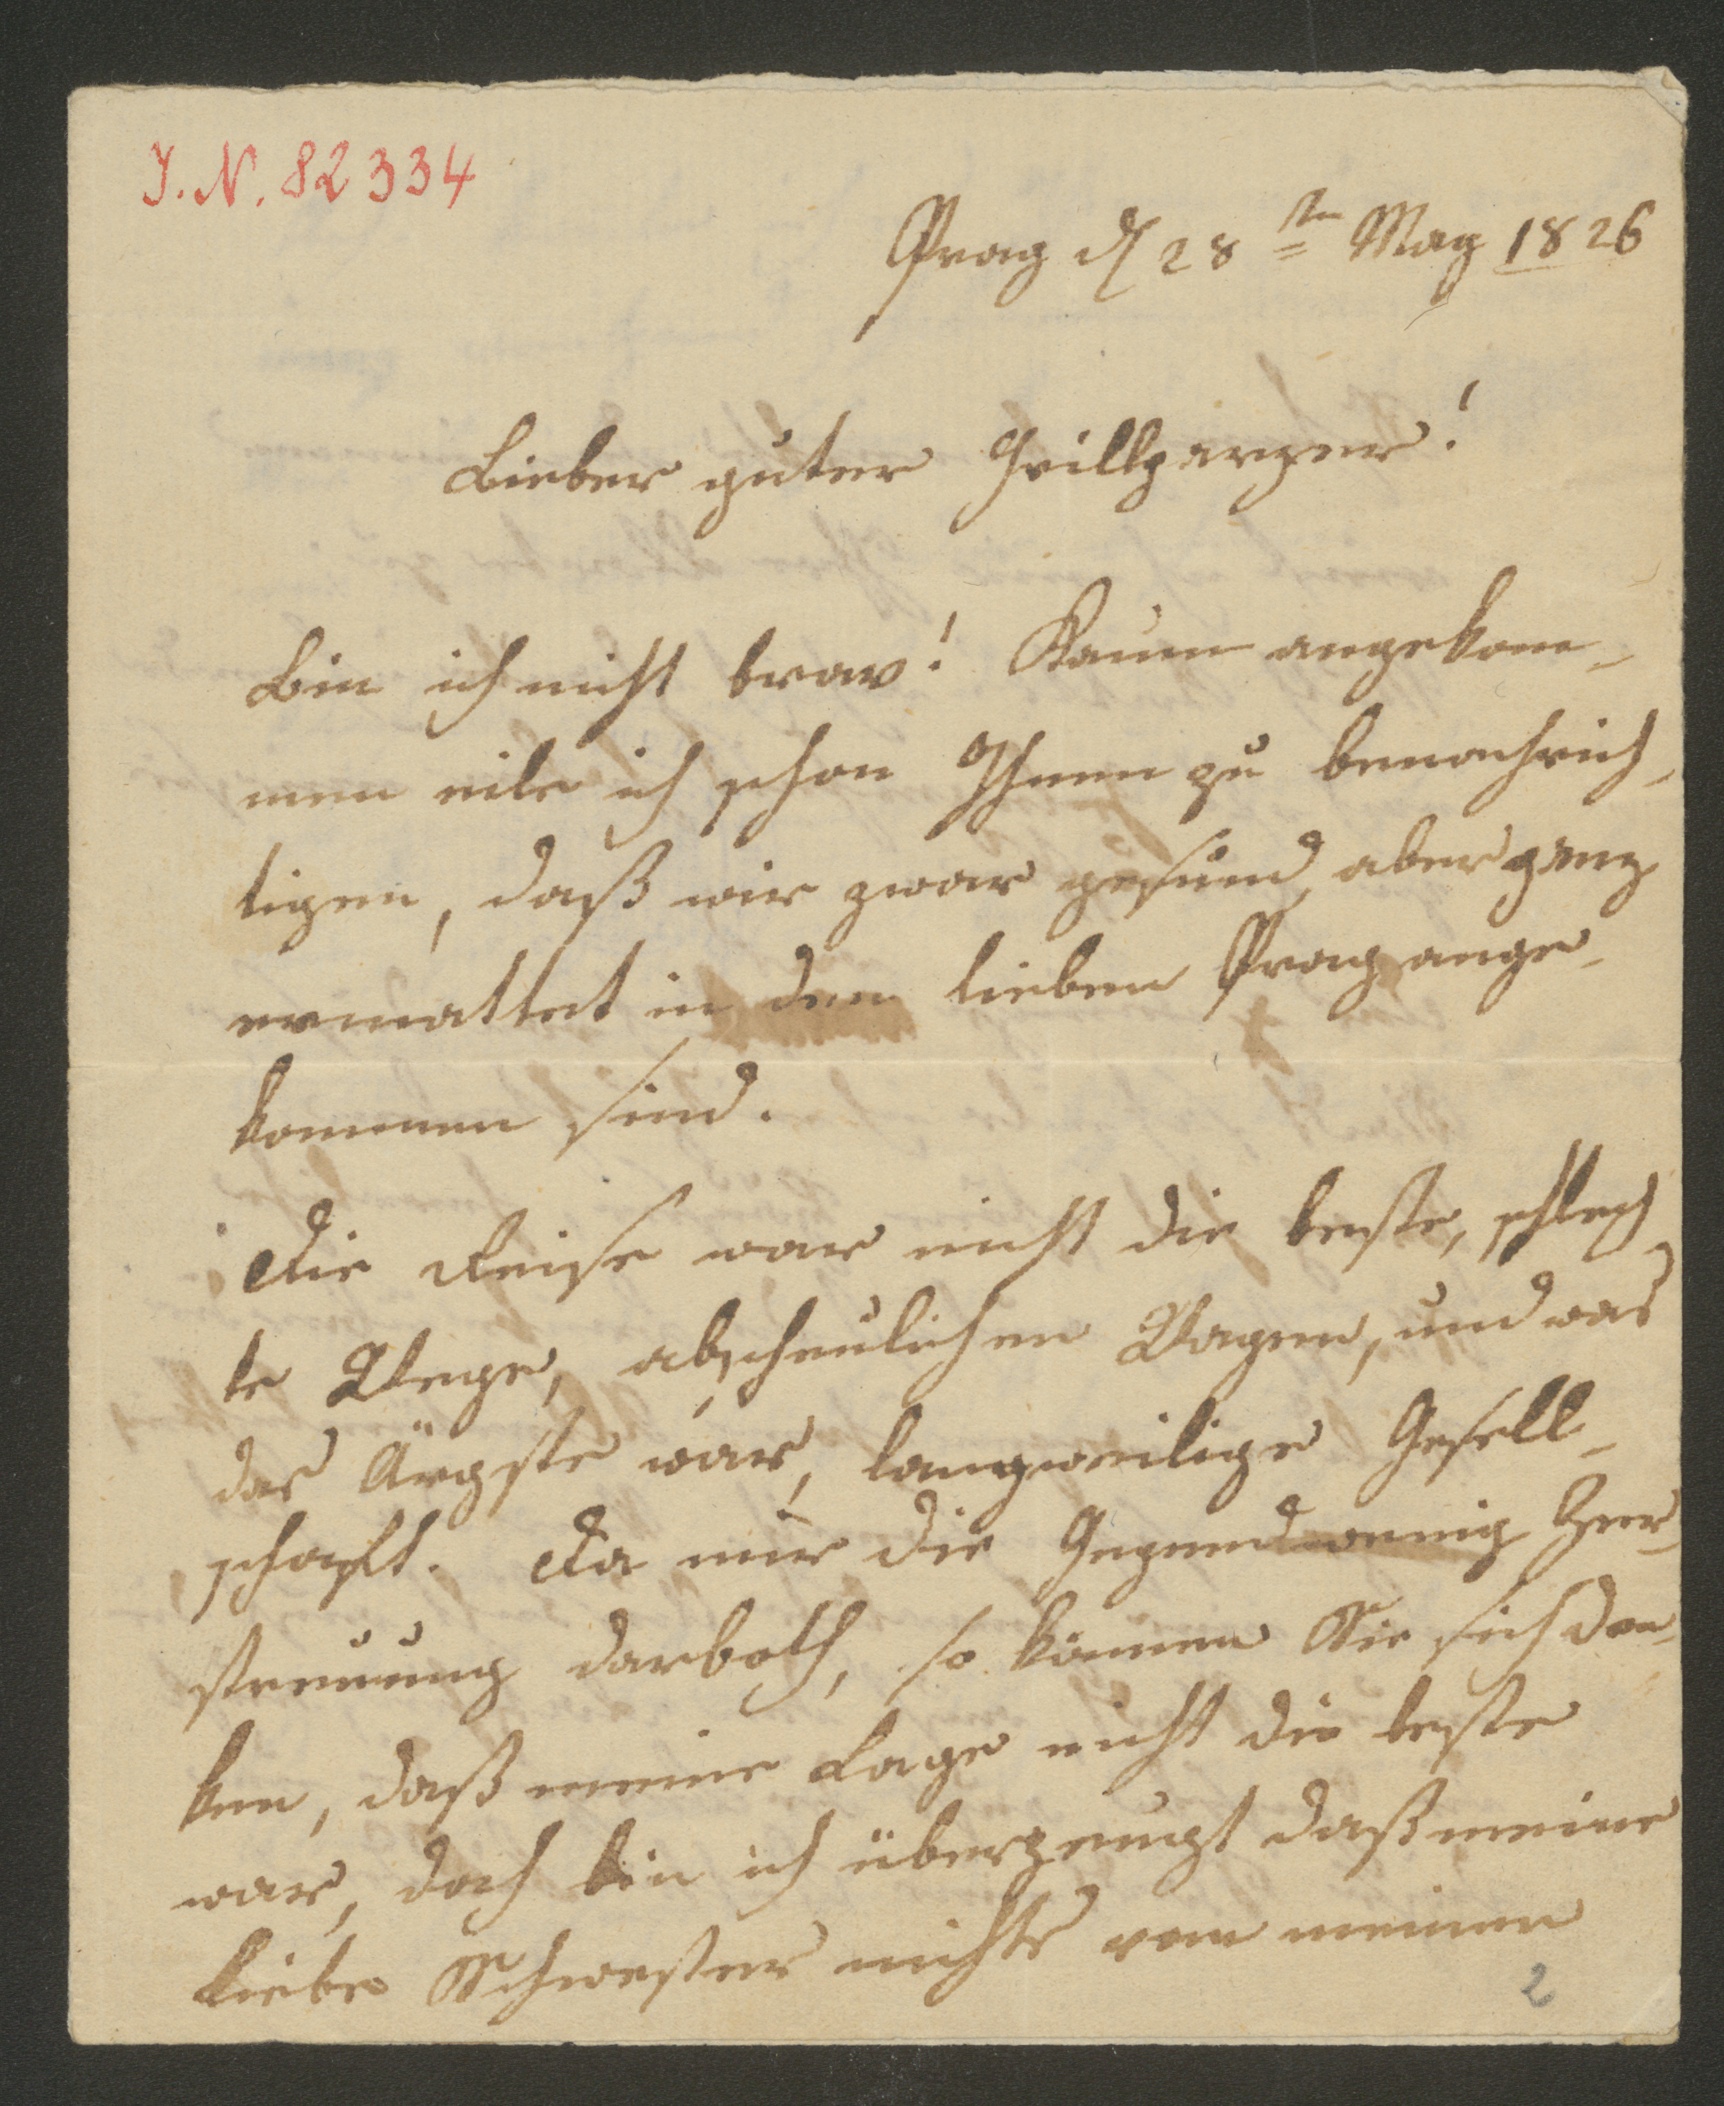 I. N. 82334
Prag d 28ten May 1826
Lieber guter Grillparzer!
Bin ich nicht brav! Kaum angekom-
men eile ich schon Ihnen zu benachrich-
tigen, daß wir zwar gesund, aber ganz
ermattet in dem lieben Prag ange-
kommen sind.
Die Reise war nicht die beste, schlech-
te Wege, abscheulichen Wagen, und was
das Ärgste war, langweilige Gesell-
schaft. Da nur die Gegend wenig Zer-
streuung darboth, so können Sie sich den-
ken, daß meine Lage nicht die beste
war, doch bin ich überzeugt daß meine
liebe Schwester nichts von meinen
2